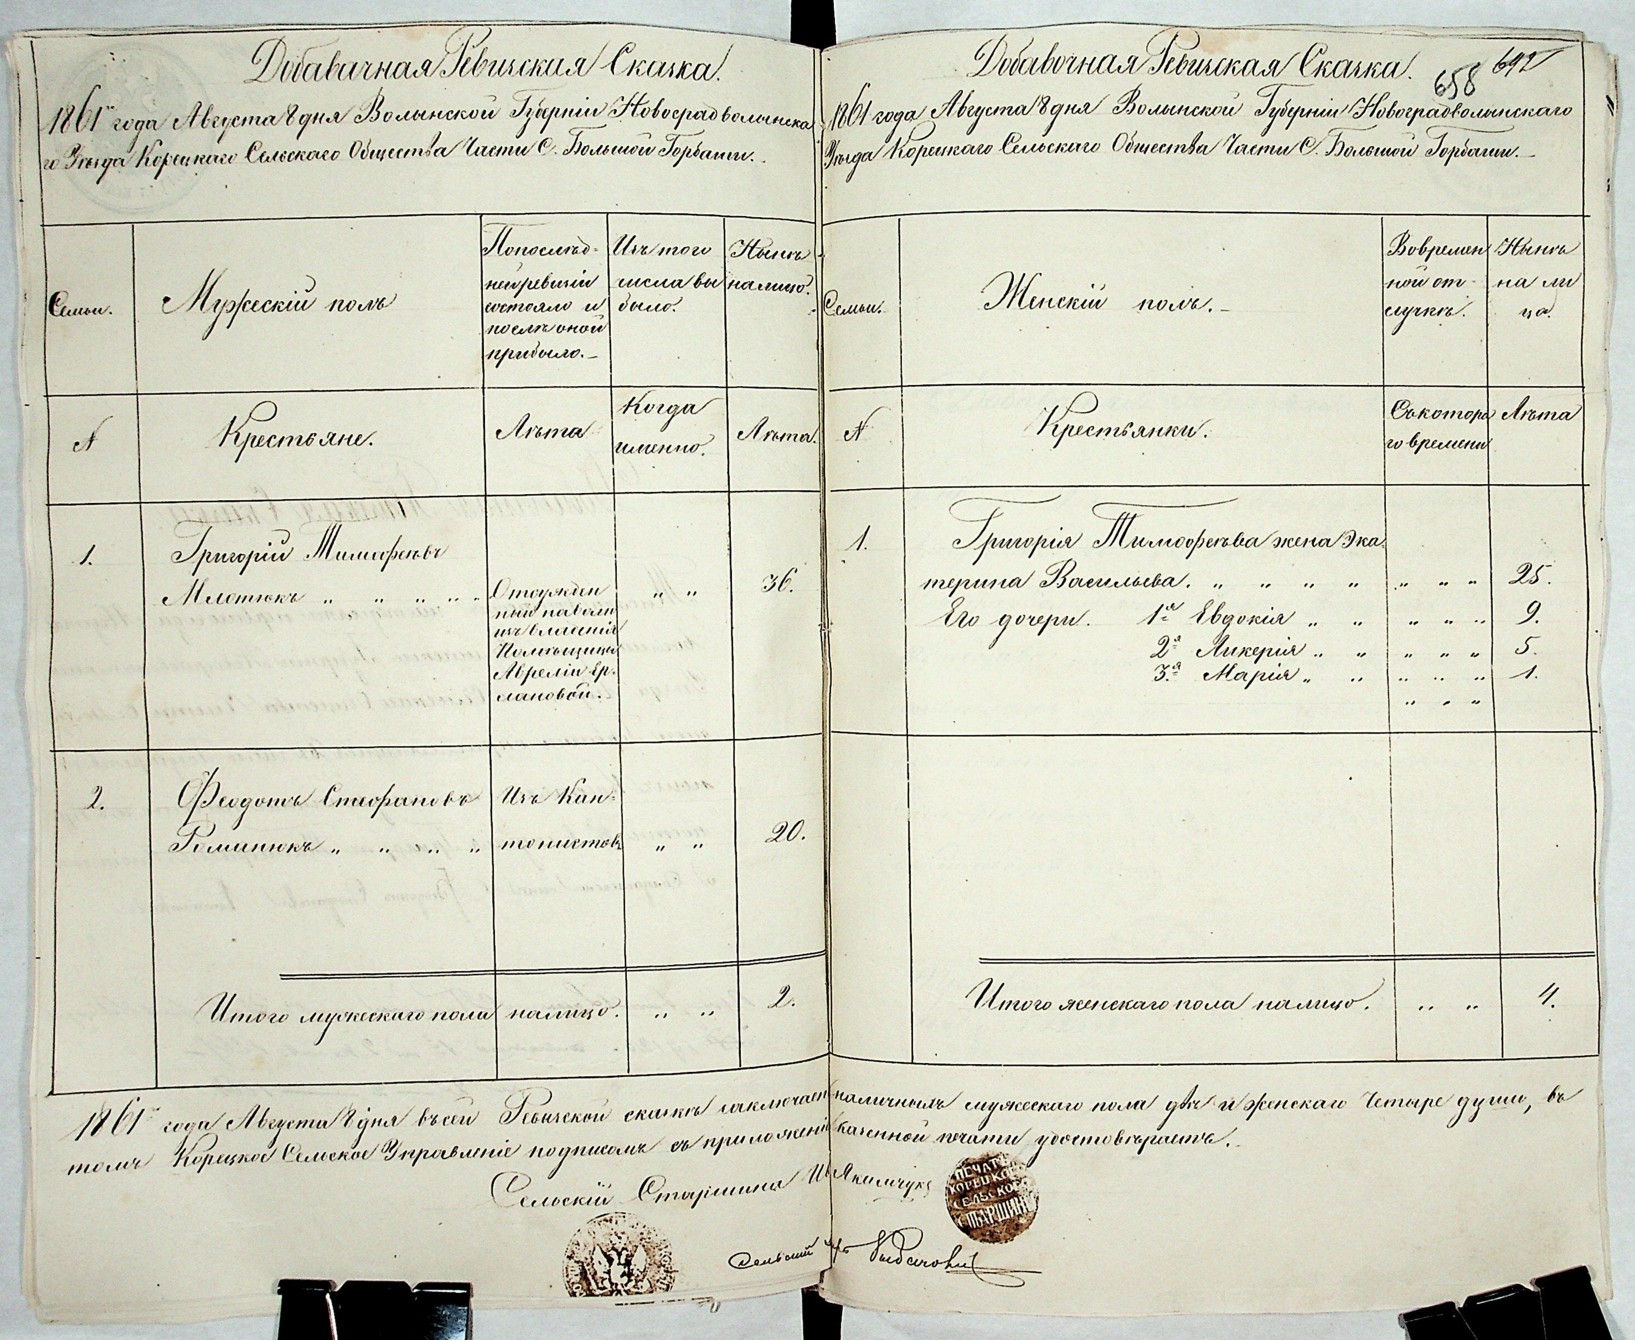 Добавачная Ревизския Сказка.
1861 года Августа 8 дня Волынской Губерніи Новоградволынска
го Уѣзда Корецкаго Сельскаго Общества Части С. Большой Горбаши.
Семьи.
Мужескій полъ
Попослѣд-
ней ревизіи
состояло и
послѣ оной
прибыло.
Изъ того
числа вы
было.
Нынѣ
налицо.
№
Крестьяне.
Лѣта
Когда
именно.
Лѣта.
1.
Григорій Тимофѣевъ
Млотюкъ „ „ „ „ „
Отсужден
ный на волю
изъ владѣнія
Помѣщицы
Авреліи Ер-
лановой.
„ „
36.
2.
Феодотъ Стефановъ
Роминюкъ „ „ „ „
Изъ Кан-
тонистовъ
„ „
20.
Итого мужескаго пола налицо. „ „ 2.
Добавочная Ревизская Сказка.
658
692
1861 года Августа 8 дня Волынской Губерніи Новоградволынскаго
Уѣзда Корецкаго Сельскаго Общества Части С. Большой Горбаши.
Семьи.
Женскій полъ.
Вовремен
ной от-
лучкѣ.
Нынѣ
на ли
цо.
№
Крестьянки.
Съкотора
го времени
Лѣта
1.
Григорія Тимофѣева жена Эка
терина Васильева. „ „ „ „ „ „ „ 25.
Его дочери. 1я Евдокія „ „ „ „ „ 9.
2я Ликерія „ „ „ „ „ 5.
3я Марія „ „ „ „ „ 1.
„ „ „
Итого женскаго пола налицо. „ „ 4.
1861 года Августа 8 дня въ сей Ревизской сказкѣ заключаен наличнымъ мужескаго пола двѣ и женскаго Четыре души, въ
томъ Корецкое Сельское Управленіе подписомъ съ приложеніе казенной печати удостовѣряетъ.
Сельскій Старшина Якимчукъ
ПЕЧАТЬ
КОРЕЦКОГО
СЕЛЬСКОГО
СТАРШИНЫ
Сельскій